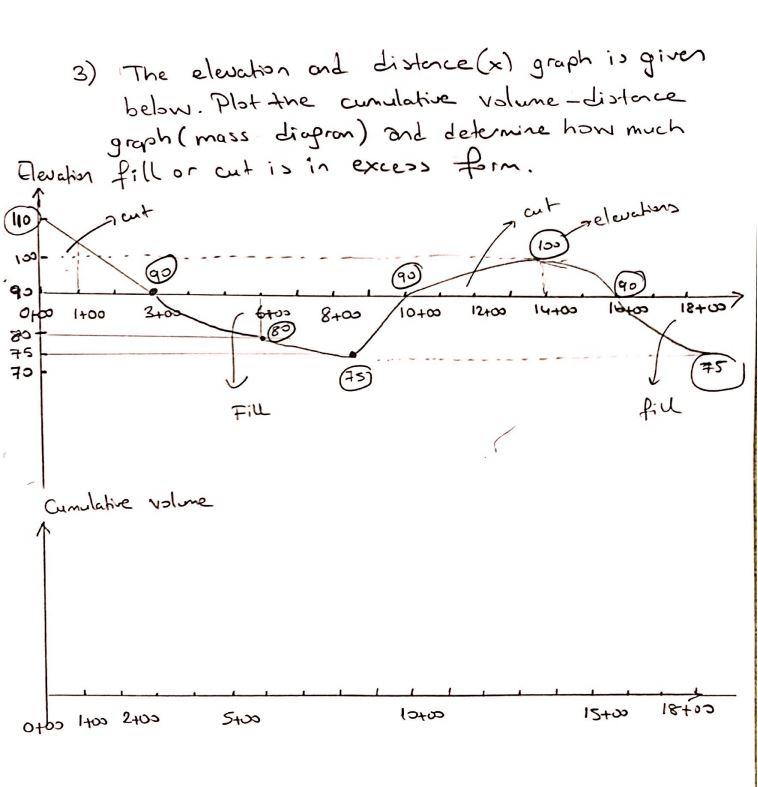 3) The elevation and distance(x) graph is given
below. Plot the cumulative volume-distance
graph (mass diagram) and determine how much
fill or cut is in excess form.
Elevation
110
cut
cut
elevations
100
100
90
90
90
90
0+00 1+00 3+00 6+00 8+00 10+00 12+00 14+00 16+00 18+00
80
80
75
75
75
70
Fill
fill
Cumulative volume
0+00 1+00 2+00 5+00 10+00 15+00 18+00